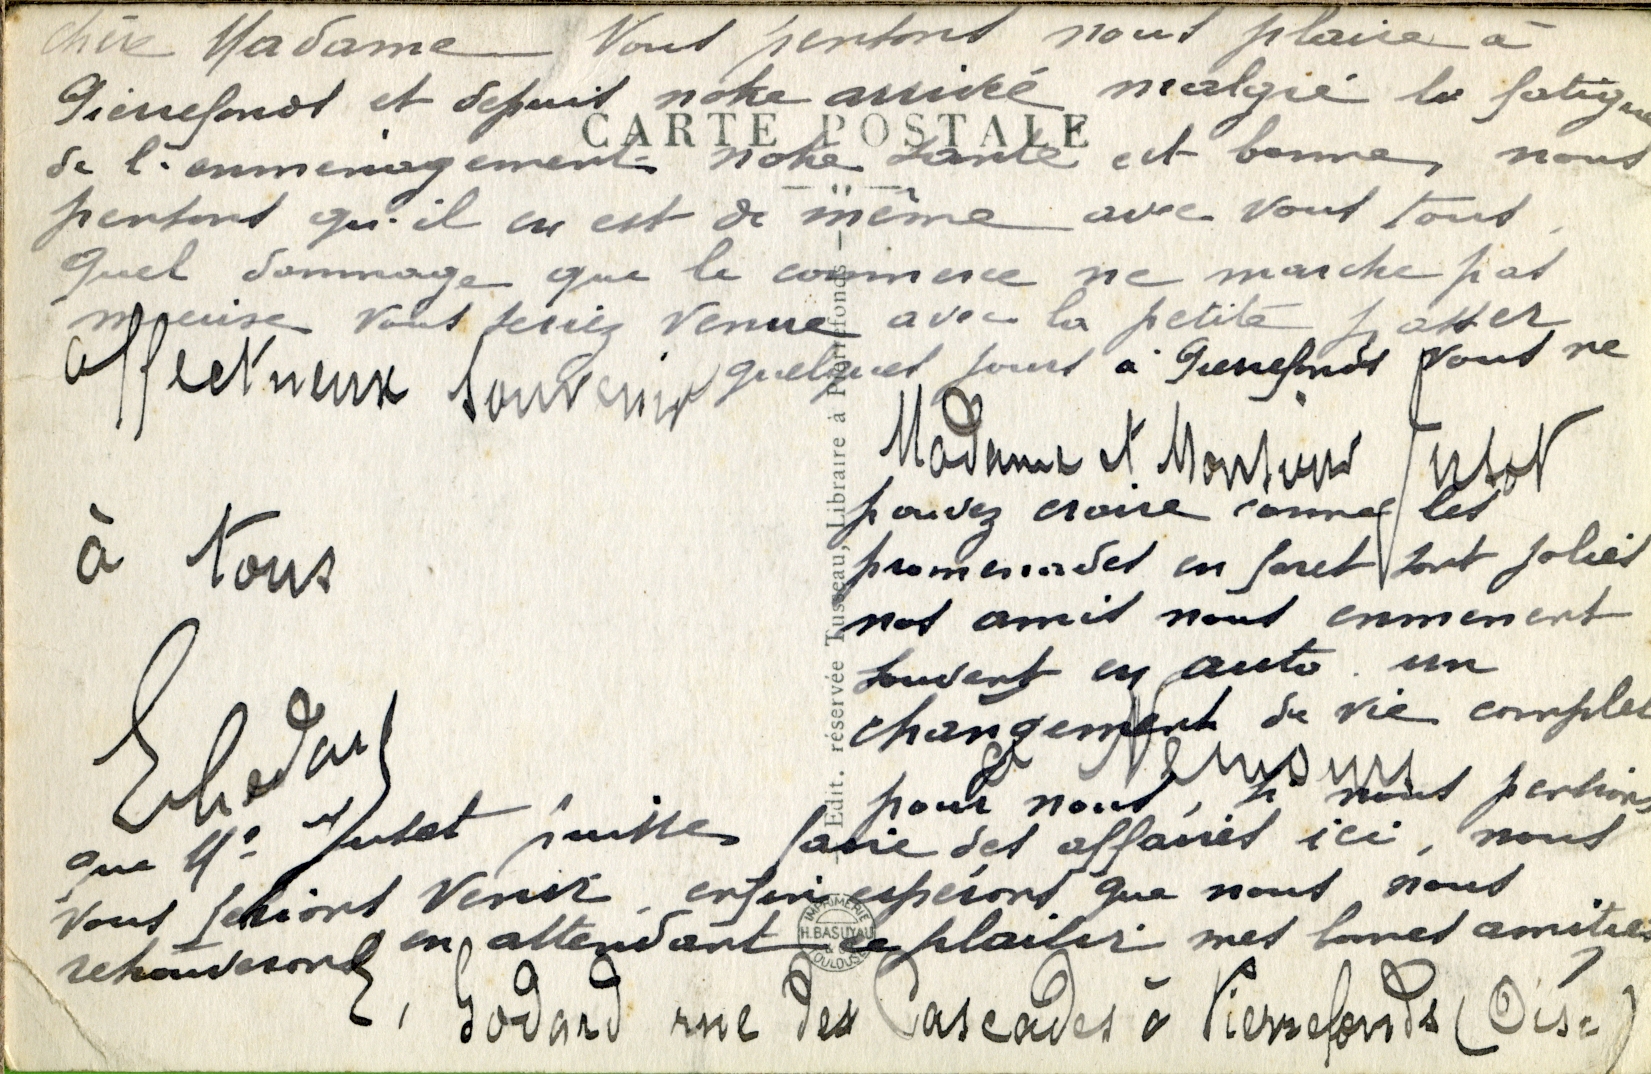 chère Madame Nous pensons nous plaire à
Pierrefonds et depuis notre arrivée malgré la fatigue
CARTE POSTALE
de l'enmenagement notre santé est bonne, nous
pensons qu'il en est de même avec vous tous.
Quel dommage que le commerce ne marche pas
mieux vous seriez venue avec la petite passer
quelques jours à Pierrefonds vous ne
affectueux souvenir
à tous
Madame et Monsieur Jutot
pouvez croire comme les
promenades en foret sont jolies
nos amis nous enmenent
souvent en auto. un
changement de vie complet
à Nemours
pour nous, si nous pensions
que Mr Jutot puisse faire des affaires ici, nous
vous ferions venir. enfin espérons que nous nous
retrouverons en attendant ce plaisir mes bonnes amitiés
E, Godard rue des Cascades à Pierrefonds (Oise)
Edit. réservée Tusseau, Libraire à Pierrefonds
IMPRIMERIE
H. BASUYAU
TOULOUSE